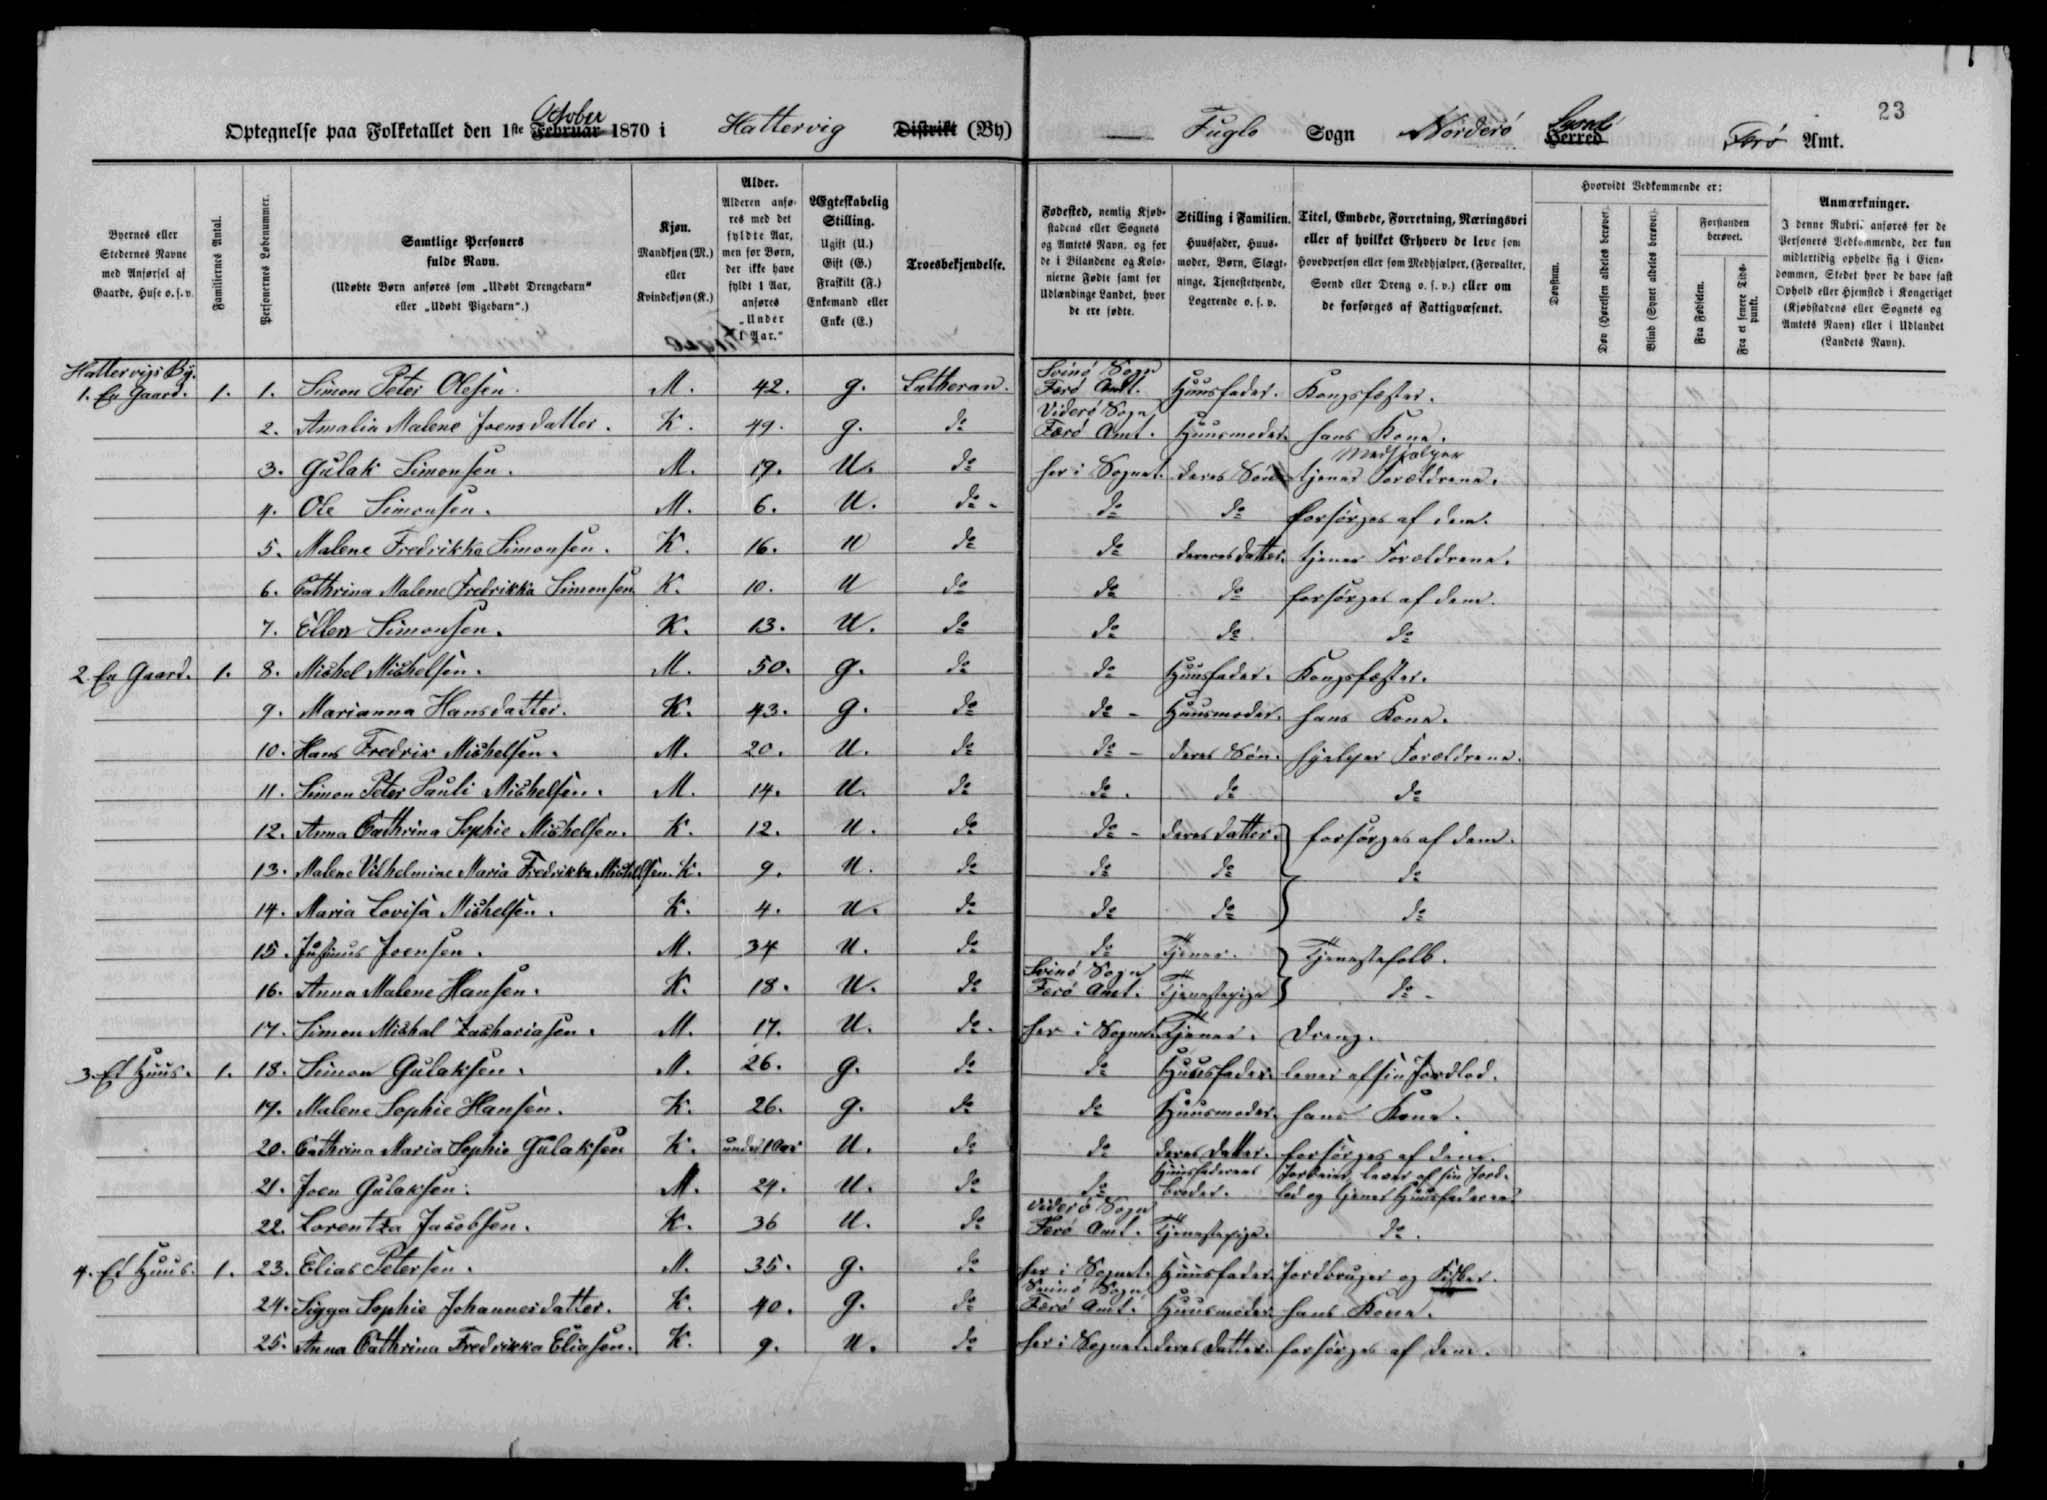 23
Optegnelse paa Folketallet den 1ste Februar October 1870 i Hattervig Distrikt (By) — Fuglø Sogn Norderø Herred Syssel Færø Amt.
Byernes eller Stedernes Navne med Anførsel af Gaarde, Huse o. s. v.
Familiernes Antal.
Personernes Løbenummer.
Samtlige Personers fulde Navn.
(Udøbte Børn anføres som „Udøbt Drengebarn“ eller „Udøbt Pigebarn“.)
Kjøn. Mandkjøn (M.) eller Kvindekjøn (K.)
Alder. Alderen anføres med det fyldte Aar, men for Børn, der ikke have fyldt 1 Aar, anføres „Under 1 Aar.“
Ægteskabelig Stilling. Ugift (U.) Gift (G.) Fraskilt (F.) Enkemand eller Enke (E.)
Troesbekjendelse.
Fødested, nemlig Kjøbstadens eller Sognets og Amtets Navn, og for de i Bilandene og Kolonierne Fødte samt for Udlændinge Landet, hvor de ere fødte.
Stilling i Familien. Huusfader, Huusmoder, Børn, Slægtninge, Tjenestetyende, Logerende o. s. v.
Titel, Embede, Forretning, Næringsvei eller af hvilket Erhverv de leve som Hovedperson eller som Medhjælper, (Forvalter, Svend eller Dreng o. s. v.) eller om de forsørges af Fattigvæsenet.
Hvorvidt Vedkommende er:
Døvstum.
Døv (Hørelsen aldeles berøvet).
Blind (Synet aldeles berøvet).
Forstanden berøvet.
Fra Fødselen.
Fra et senere Tidspunkt.
Anmærkninger. I denne Rubrik anføres for de Personers Vedkommende, der kun midlertidig opholde sig i Eiendommen, Stedet hvor de have fast Ophold eller Hjemsted i Kongeriget (Kjøbstadens eller Sognets og Amtets Navn) eller i Udlandet (Landets Navn).
Hattervigs By.
1. En Gaard. 1. 1. Simon Peter Olesen. M. 42. g. Lutheran. Svinø Sogn Færø Amt. Huusfader. Kongsfæster.
2. Amalia Malene Joensdatter. K. 49. g. do Viderø Sogn Færø Amt. Huusmoder. hans Kone.
3. Gulak Simonsen. M. 19. U. do her i Sognet. deres Søn tjener Forældrene. Medhjælper
4. Ole Simonsen. M. 6. U. do do do forsørges af dem.
5. Malene Fredrikka Simonsen. K. 16. U do do dereres datter. tjener Forældrene.
6. Cathrina Malene Fredrikka Simonsen K. 10. U do do do forsørges af dem.
7. Ellen Simonsen. K. 13. U. do do do do
2. En Gaard. 1. 8. Mishel Mishelsen. M. 50. g. do do Huusfader. Kongsfæster.
9. Marianna Hansdatter. K. 43. g. do do Huusmoder. hans Kone.
10. Hans Fredrik Mishelsen. M. 20. U. do do deres Søn. hjelper Forældrene.
11. Simon Peter Pauli Mishelsen. M. 14. U. do do. do do
12. Anna Cathrina Sophie Mishelsen. K. 12. U. do do deres datter. forsørges af dem.
13. Malene Vilhelmine Maria Fredrikka Mishelsen. K. 9. U. do do do do
14. Maria Lovisa Mishelsen. K. 4. U. do do do do
15. Justinus Joensen. M. 34 U. do do Tjener. Tjenestefolk.
16. Anna Malene Hansen. K. 18. U. do Svinø Sogn Færø Amt. Tjenestepige do
17. Simon Mishal Zachariasen. M. 17. U. do. her i Sognet. Tjener. Dreng.
3. Et Huus. 1. 18. Simon Gulaksen. M. 26. g. do do Huusfader. lever af sin Jordlod.
19. Malene Sophie Hansen. K. 26. g. do do Huusmoder. hans Kone.
20. Cathrina Maria Sophie Gulaksen K. under 1 Aar U. do do deres datter. forsørges af dem.
21. Joen Gulaksen. M. 24. U. do do Huusfaderens broder. Jordeier, lever af sin Jordlod og tjener Huusfaderen
22. Lorentza Jacobsen. K. 36 U. do Viderø Sogn Færø Amt. Tjenestepige. do.
4. Et Huus. 1. 23. Elias Petersen. M. 35. g. do her i Sognet. Huusfader. Jordbruger og Fisker.
24. Sigga Sophie Johannesdatter. K. 40. g. do Svinø Sogn Færø Amt. Huusmoder. hans Kone.
25. Anna Cathrina Fredrikka Eliasen. K. 9. U. do her i Sognet. deres datter. forsørges af dem.